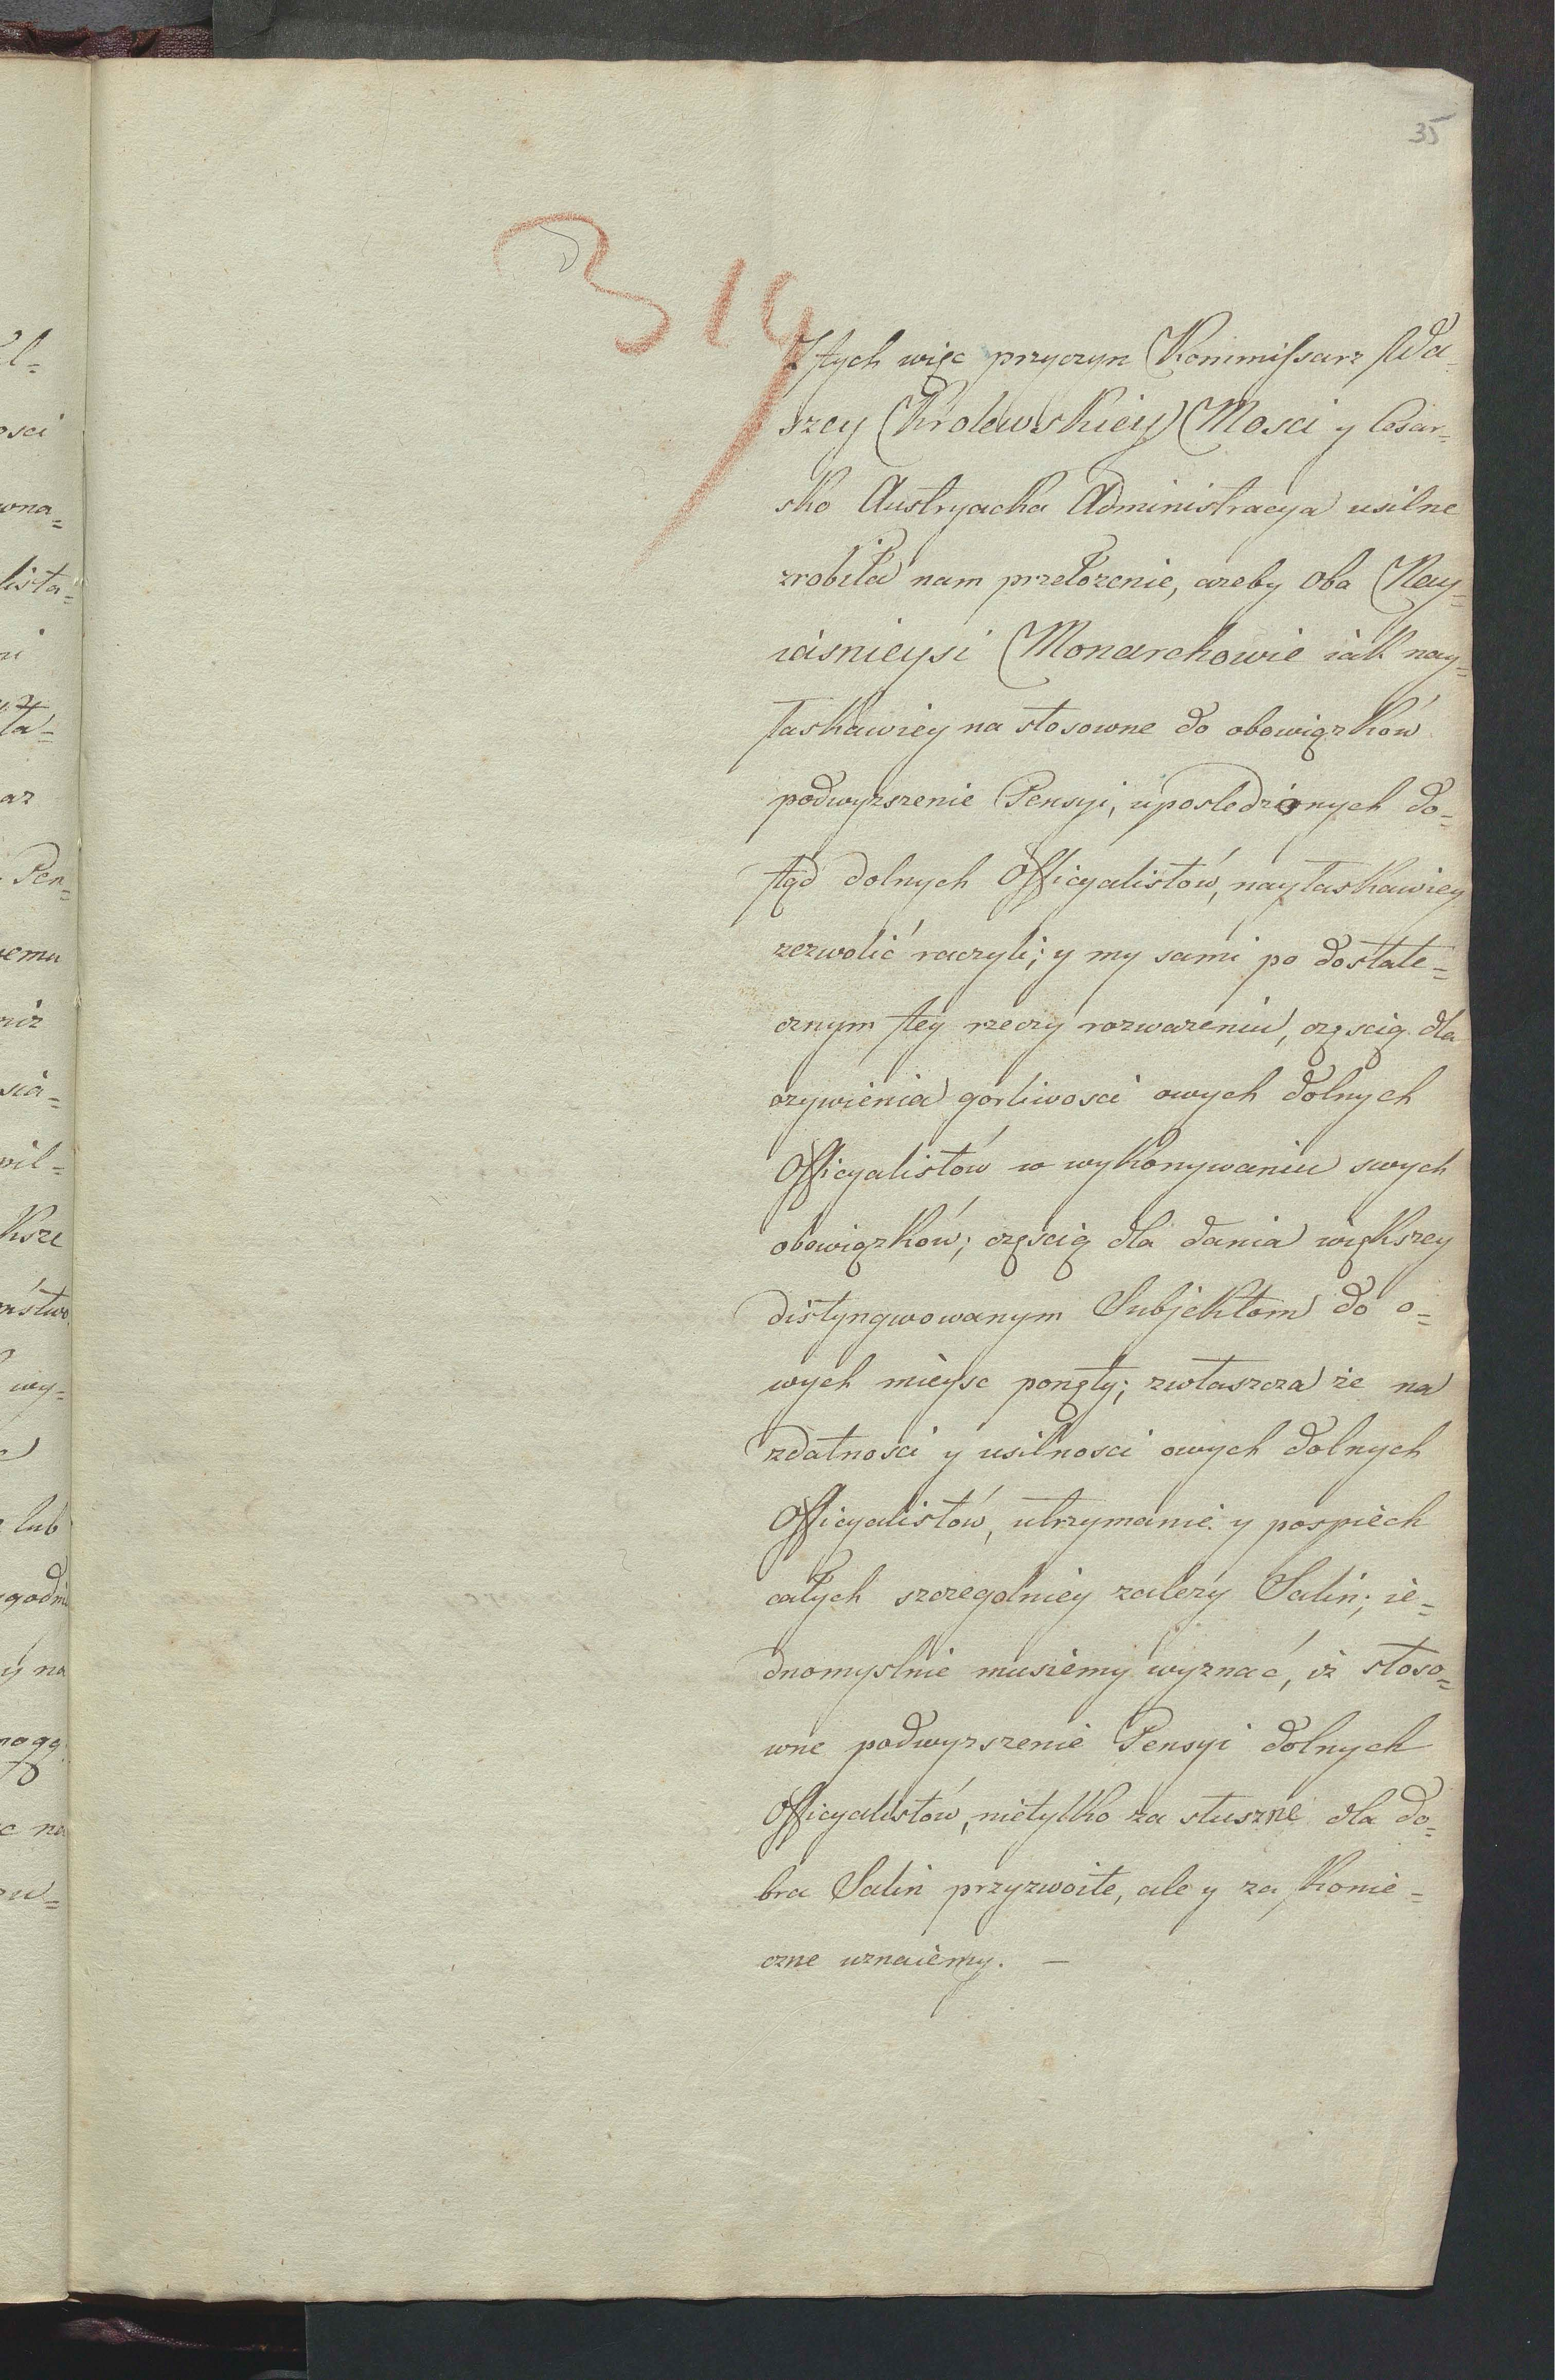 35
319
Z tych więc przyczyn Kommissarz Wa-
szey Krolewskiey Mosci y Cesar=
sko Austryacka Administracya usilne
zrobiła nam przełozenie, azeby oba Nay=
iasnieysi Monarchowie iak nay=
łaskawiey na stosowne do obowiązków
podwyzszenie Pensyi, uposledzonych do=
tąd dolnych Officyalistów, nayłaskawiey
zezwolić raczyli; y my sami po dostate=
cznym tey rzeczy rozwazeniu, częscią dla
ozywienia gorliwosci owych dolnych
Officyalistów w wykonywaniu swych
obowiązków; częscią dla dania większey
distyngwowanym Subjektom do o=
wych mieysc ponęty; zwłaszcza że na
zdatnosci y usilnosci owych dolnych
Officyalistów, utrzymanie y pospiech
całych szczegolniey zalezy Salin; ie=
dnomyslnie musiemy wyznać, iż stoso=
wne podwyzszenie Pensyi dolnych
Officyalistów, nietylko za słuszne dla do=
bra Salin przyzwoite, ale y za konie=
czne uznaiemy. —